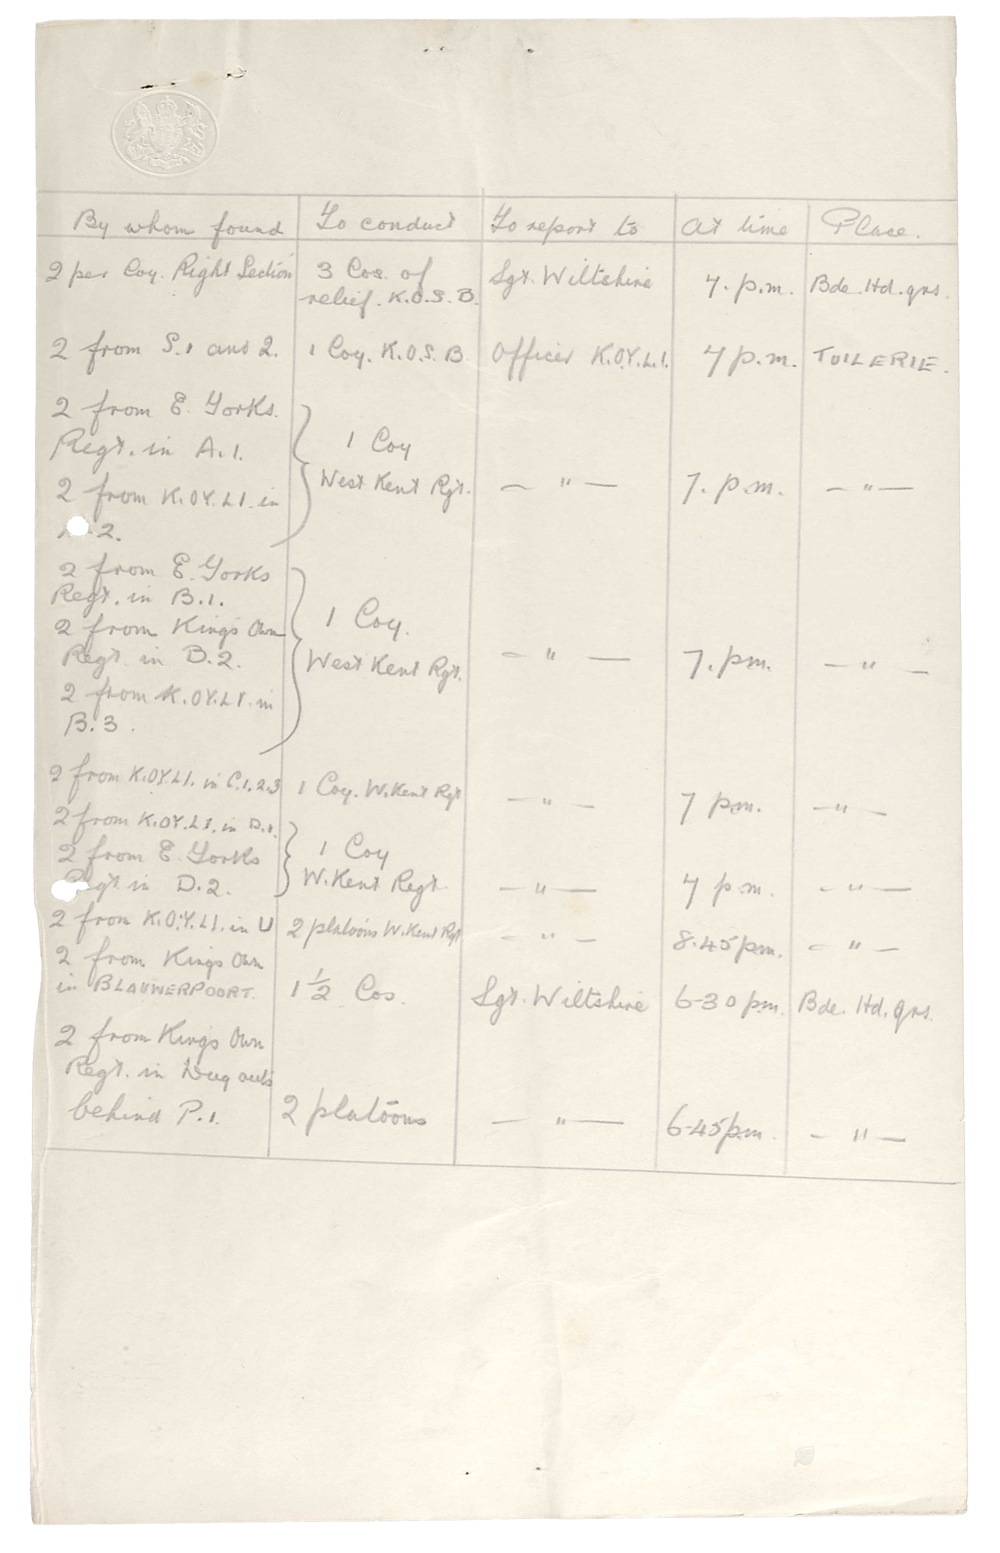 By whom found To conduct To report to At time Place.
2 per Coy. Right Section 3 Cos. of Sgt. Wiltshire 7. p.m. Bde. Hd. qrs.
relief. K.O.S.B.
2 from S.1 and 2. 1 Coy. K.O.S.B Officer K.O.Y.L.I. 7 p.m. TUILERIE.
2 from E. Yorks.
Regt. in A.1. 1 Coy
2 from K.OY.LI. in West Kent Rgt. — " — 7. p.m. — " —
2.
2 from E. Yorks
Regt. in B.1.
2 from Kings Own 1 Coy.
Regt. in B.2. West Kent Rgt. — " — 7. pm. — " —
2 from K.OY.LI. in
B.3.
2 from K.OY.LI. in C.1.2.3 1 Coy. W. Kent Rgt — " — 7 pm. — " —
2 from K.OY.LI. in D.1.
2 from E. Yorks 1 Coy
Regt in D.2. W. Kent Regt. — " — 7 p m. — " —
2 from K.O.Y.LI. in U 2 platoons W. Kent Rgt — " — 8.45 pm. — " —
2 from Kings Own
in BLAUWEPOORT. 1 1/2 Cos. Sgt. Wiltshire 6-30 pm. Bde. Hd. qrs.
2 from Kings Own
Regt. in Dug outs
behind P.1. 2 platoons — " — 6-45 pm. — " —